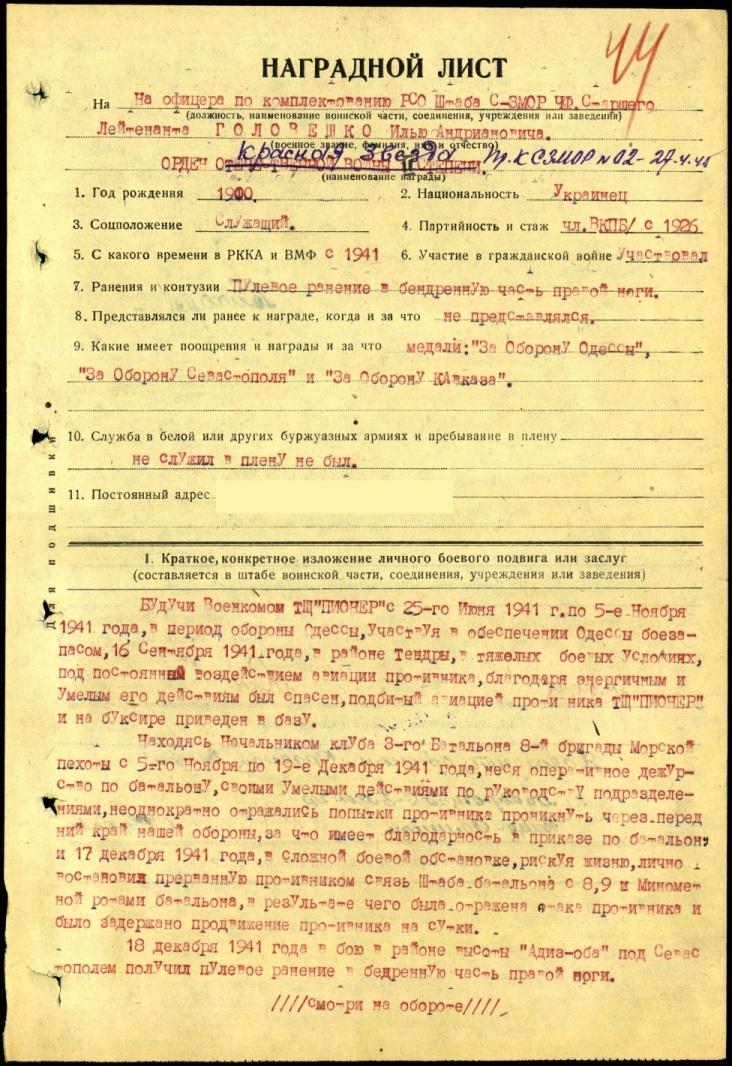 44
НАГРАДНОЙ ЛИСТ
На На офицера по комплектованию РСО Штаба С-ЗМОР ЧФ.Старшего
(должность, наименование воинской части, соединения, учреждения или заведения)
Лейтенанта ГОЛОВЕШКО Илью Андриановича.
(военное звание, фамилия, имя и отчество)
Красная Звезда Пр. КСЗМОР №02-27.4.45
ОРДЕН ОТЕЧЕСТВЕННОЙ ВОЙНЫ II СТЕПЕНИ.
(наименование награды)
1. Год рождения 1900. 2. Национальность Украинец
3. Соцположение Служащий. 4. Партийность и стаж чл.ВКПБ/ с 1926
5. С какого времени в РККА и ВМФ с 1941 6. Участие в гражданской войне Участвовал
7. Ранения и контузии Пулевое ранение в бендренную часть правой ноги.
8. Представлялся ли ранее к награде, когда и за что не представлялся.
9. Какие имеет поощрения и награды и за что медали:"За Оборону Одессы",
"За Оборону Севастополя" и "За Оборону КАвказа".
10. Служба в белой или других буржуазных армиях и пребывание в плену
не служил в плену не был.
11. Постоянный адрес
Для подшивки
I. Краткое, конкретное изложение личного боевого подвига или заслуг
(составляется в штабе воинской части, соединения, учреждения или заведения)
Будучи Военкомом ТЩ"ПИОНЕР"с 25-го Июня 1941 г.по 5-е Ноября
1941 года,в период обороны Одессы,участвуя в обеспечении Одессы боеза-
пасом,16 Сентября 1941.года,в районе Тендры,в тяжелых боевых условиях,
под постоянный воздействием авиации противника,благодаря энергичным и
умелым его действиям был спасен,подбитый авиацией противника ТЩ"ПИОНЕР"
и на буксире приведен в базу.
Находясь Начальником клуба 3-го Батальона 8-й бригады Морской
пехоты с 5-го Ноября по 19-е Декабря 1941 года,неся оперативное дежур-
ство по батальону,своими умелыми действиями по руководству подразделе-
ниями,неоднократно отражались попытки противника проникнуть через перед
ний край нашей обороны,за что имеет благодарность в приказе по батальону
и 17 декабря 1941 года,в сложной боевой обстановке,рискуя жизню,лично
востановил прерванную противником связь Штаба батальона с 8,9 и Миномет
ной ротами батальона,в результате чего была отражена атака противника и
было задержано продвижение противника на сутки.
18 декабря 1941 года в бою в районе высоты "Адиз-оба" под Севас
тополем получил пулевое ранение в бедренную часть правой ноги.
////смотри на обороте////